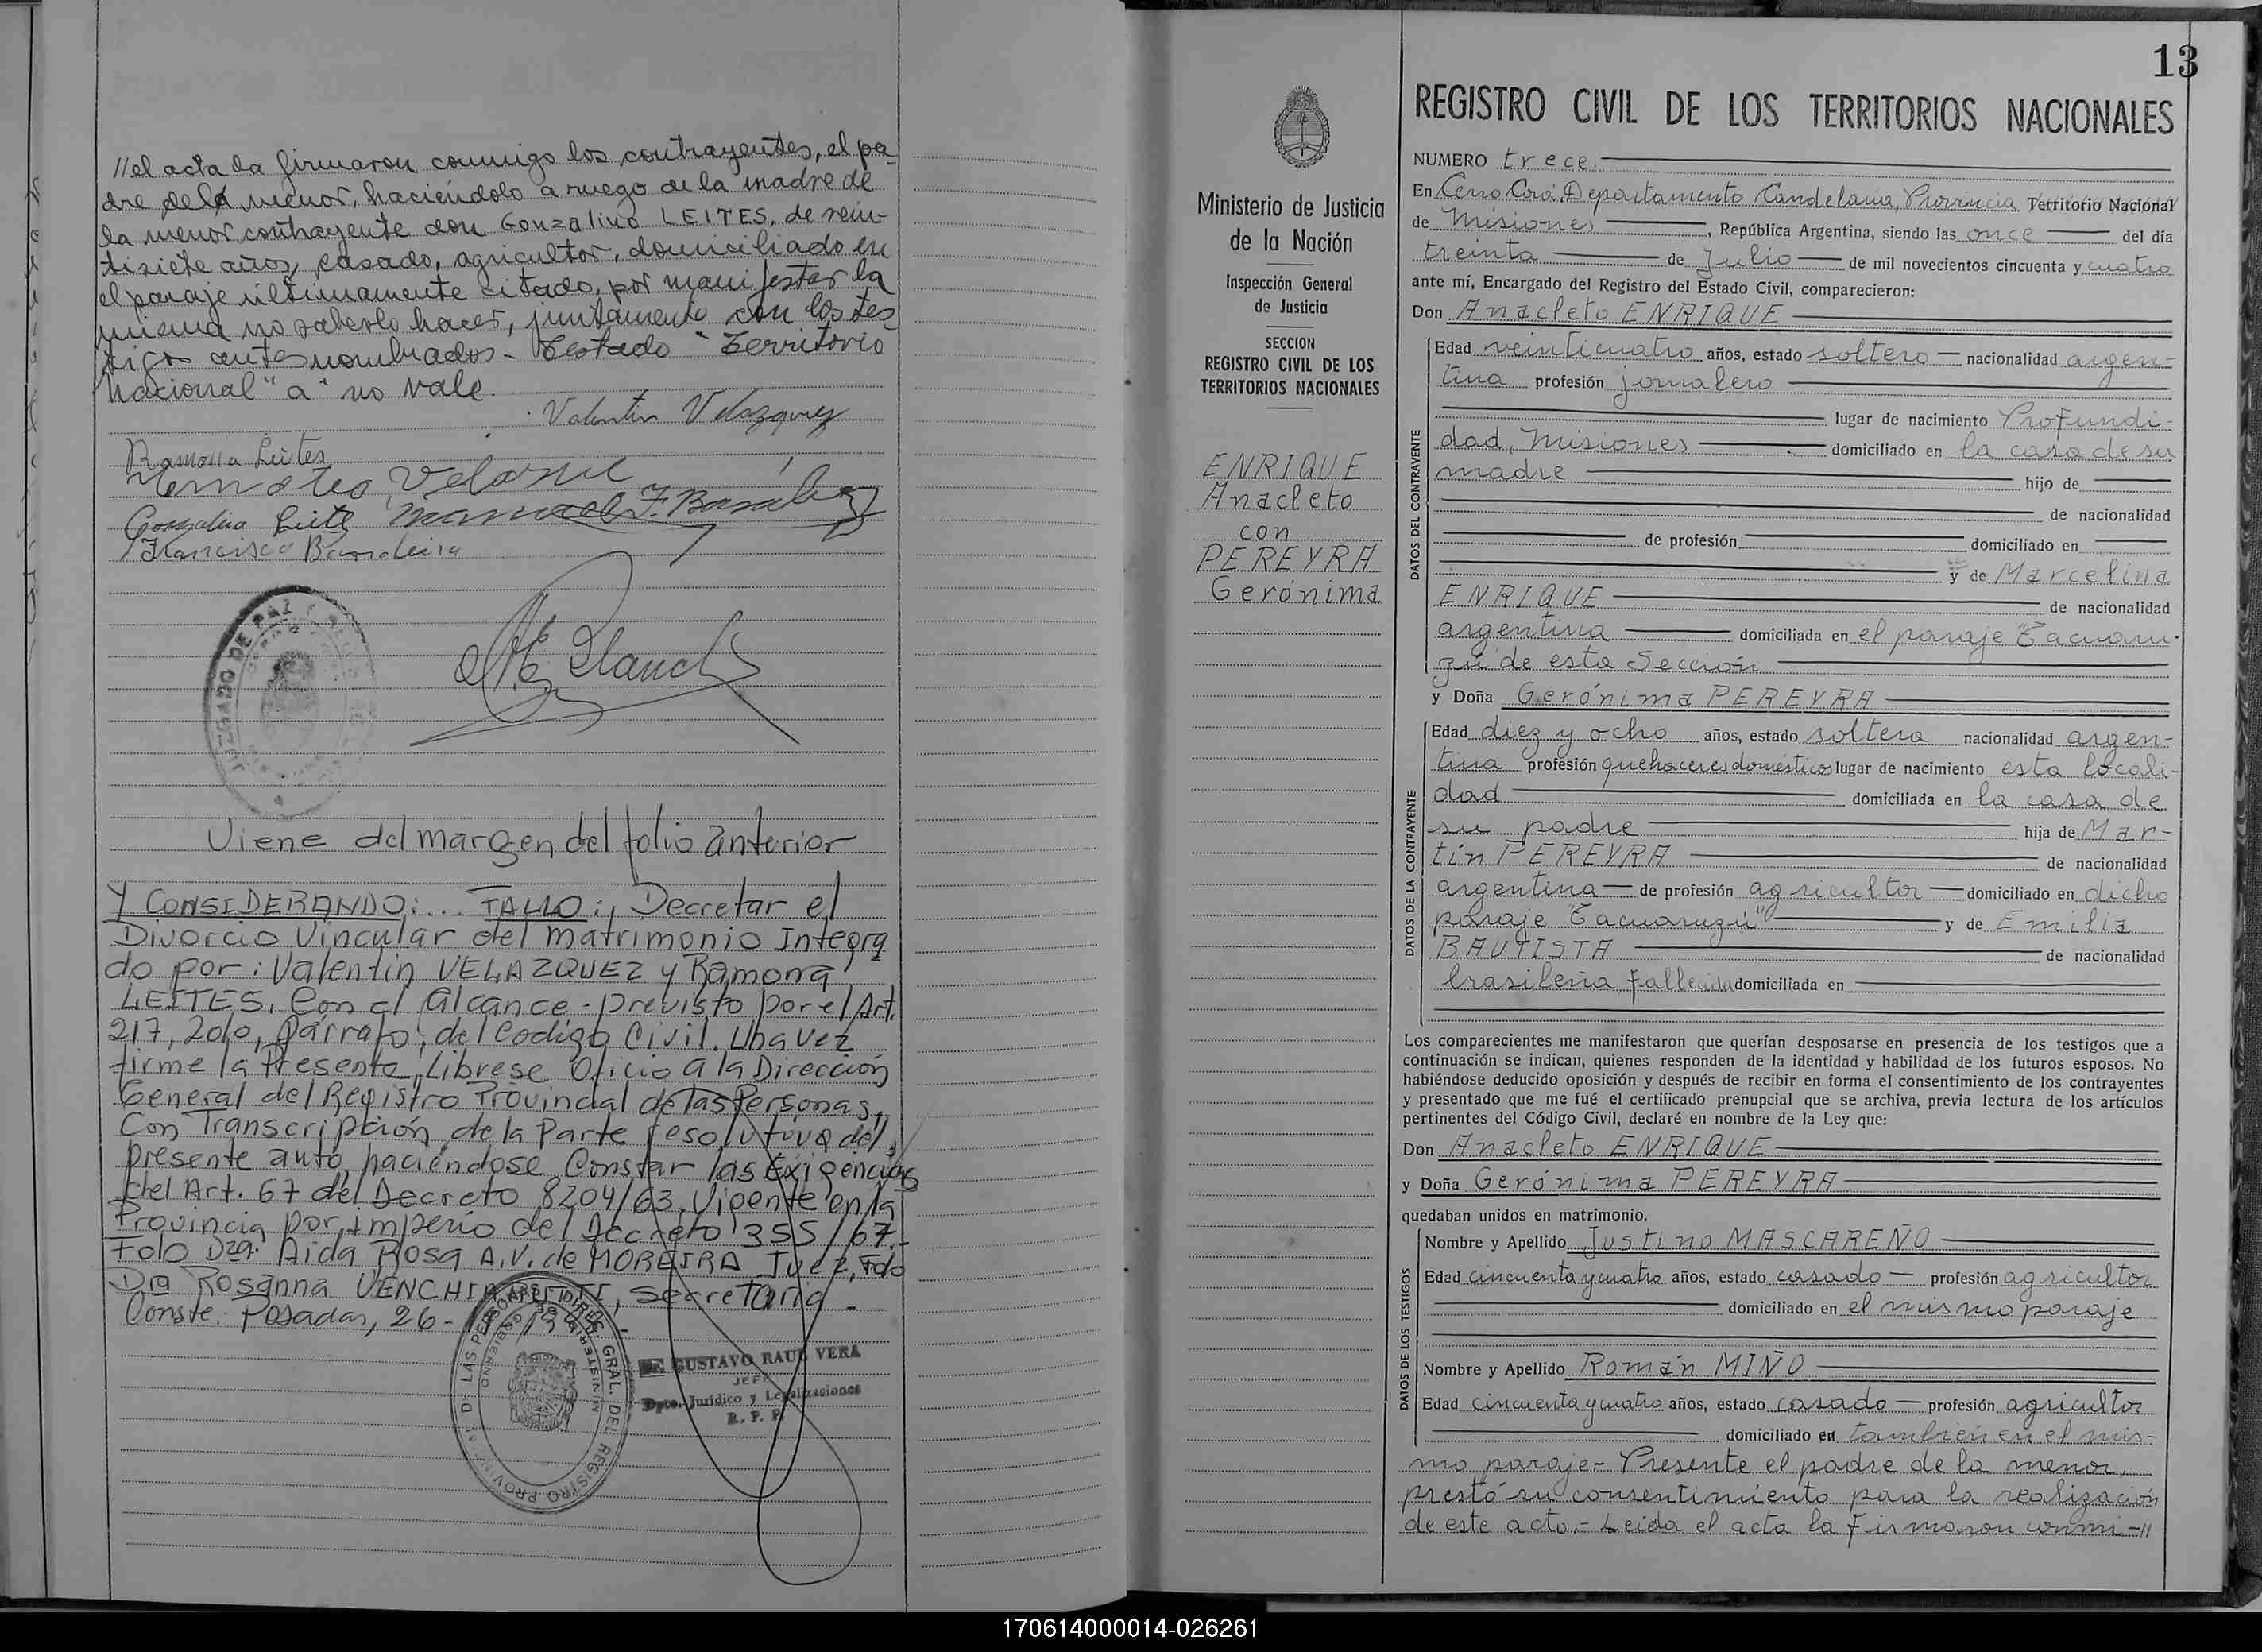 //el acta la firmaron conmigo los contrayentes, el pa-
dre del menor, haciéndolo a ruego de la madre de
la menor contrayente don Gonzalino LEITES, de vein-
tisiete años, casado, agricultor, domiciliado en
el paraje últimamente citado, por manifestar la
misma no saberlo hacer, juntamente con los tes-
tigos antes nombrados.- Testado "Territorio
Nacional" "a" no vale.
Valentin Velazquez
Ramona Leites
Gonzalino Leite Manuel F. Basalis
Francisco Bandeira
JUZGADO DE PAZ
Viene del margen del folio anterior
Y CONSIDERANDO:... FALLO:, Decretar el
Divorcio Vincular del matrimonio Integra
do por: Valentin VELAZQUEZ y Ramona
LEITES, Con el alcance previsto por el Art.
217, 2do, párrafo, del Codigo Civil. Una vez
firme la Presente, Librese Oficio a la Dirección
General del Registro Provincial de las Personas,
Con Transcripción de la Parte resolutiva del
presente auto, haciéndose Constar las Exigencias
del Art. 67 del Decreto 8204/63, Vigente en la
Provincia por imperio del Decreto 355/67.-
Fdo Dra. Aida Rosa A.V. de MOREIRA Juez, Fdo
Dra Rosanna VENCHIARUTTI, Secretaria.-
Conste. Posadas, 26-
GUSTAVO RAUL VERA
JEFE
Dpto. Jurídico y Legalizaciones
R. P. P.
DIREC. GRAL. DEL REGISTRO PROV. DE LAS PERSONAS
13
REGISTRO CIVIL DE LOS TERRITORIOS NACIONALES
Ministerio de Justicia
de la Nación
Inspección General
de Justicia
SECCION
REGISTRO CIVIL DE LOS
TERRITORIOS NACIONALES
ENRIQUE
Anacleto
con
PEREYRA
Gerónima
NUMERO trece.
En Cerro Corá, Departamento Candelaria, Provincia Territorio Nacional
de Misiones, República Argentina, siendo las once del día
treinta de Julio de mil novecientos cincuenta y cuatro
ante mí, Encargado del Registro del Estado Civil, comparecieron:
Don Anacleto ENRIQUE
DATOS DEL CONTRAYENTE
Edad veinticuatro años, estado soltero nacionalidad argen-
tina profesión jornalero
lugar de nacimiento Profundi-
dad, Misiones domiciliado en la casa de su
madre hijo de
de nacionalidad
de profesión domiciliado en
y de Marcelina
ENRIQUE de nacionalidad
argentina domiciliada en el paraje "Tacuaru-
zú" de esta Sección
y Doña Gerónima PEREYRA
DATOS DE LA CONTRAYENTE
Edad diez y ocho años, estado soltera nacionalidad argen-
tina profesión quehaceres domésticos lugar de nacimiento esta locali-
dad domiciliada en la casa de
su padre hija de Mar-
tín PEREYRA de nacionalidad
argentina de profesión agricultor domiciliado en dicho
paraje "Tacuaruzú" y de Emilia
BAUTISTA de nacionalidad
brasileña fallecida domiciliada en
Los comparecientes me manifestaron que querían desposarse en presencia de los testigos que a
continuación se indican, quienes responden de la identidad y habilidad de los futuros esposos. No
habiéndose deducido oposición y después de recibir en forma el consentimiento de los contrayentes
y presentado que me fué el certificado prenupcial que se archiva, previa lectura de los artículos
pertinentes del Código Civil, declaré en nombre de la Ley que:
Don Anacleto ENRIQUE
y Doña Gerónima PEREYRA
quedaban unidos en matrimonio.
DATOS DE LOS TESTIGOS
Nombre y Apellido Justino MASCAREÑO
Edad cincuenta y cuatro años, estado casado profesión agricultor
domiciliado en el mismo paraje
Nombre y Apellido Román MIÑO
Edad cincuenta y cuatro años, estado casado profesión agricultor
domiciliado en también en el mis-
mo paraje.- Presente el padre de la menor,
prestó su consentimiento para la realización
de este acto.- Leida el acta la firmaron conmi-//
170614000014-026261